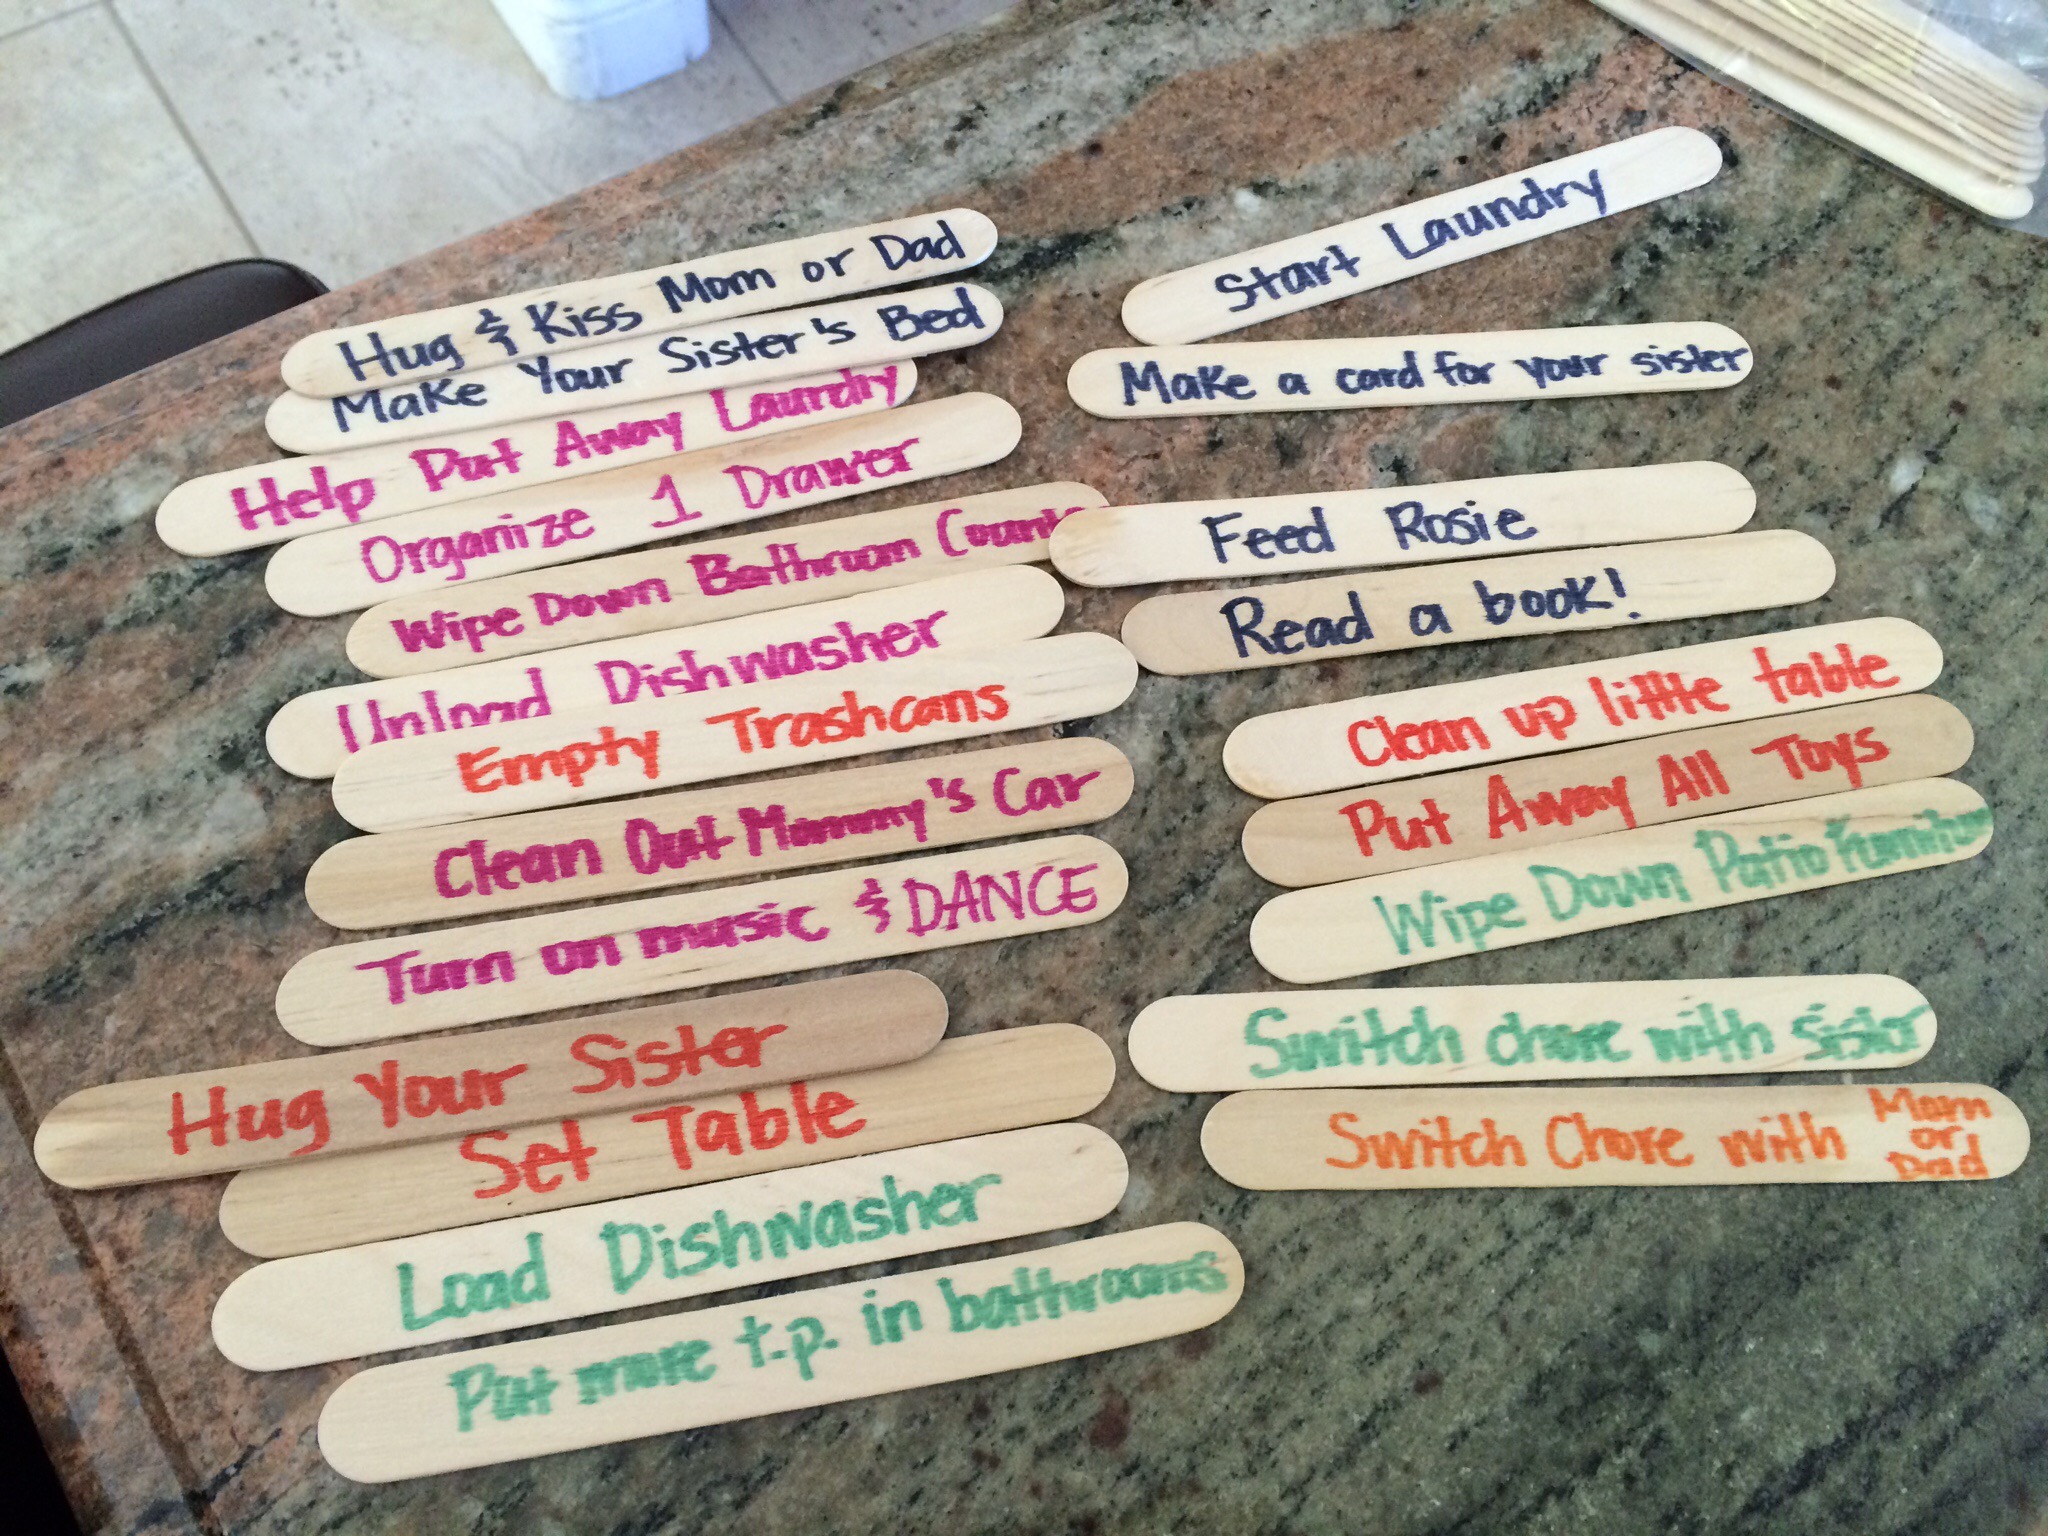 Hug & Kiss Mom or Dad
Make Your Sister's Bed
Help Put Away Laundry
Organize 1 Drawer
Wipe Down Bathroom
Unload Dishwasher
Empty Trashcans
Clean Out Mommy's Car
Turn on music & DANCE
Hug Your Sister
Set Table
Load Dishwasher
Put more t.p. in bathrooms
Start Laundry
Make a card for your sister
Feed Rosie
Read a book!
Clean up little table
Put Away All Toys
Wipe Down Patio Furniture
Switch chore with sister
Switch Chore with Mom
or
Dad